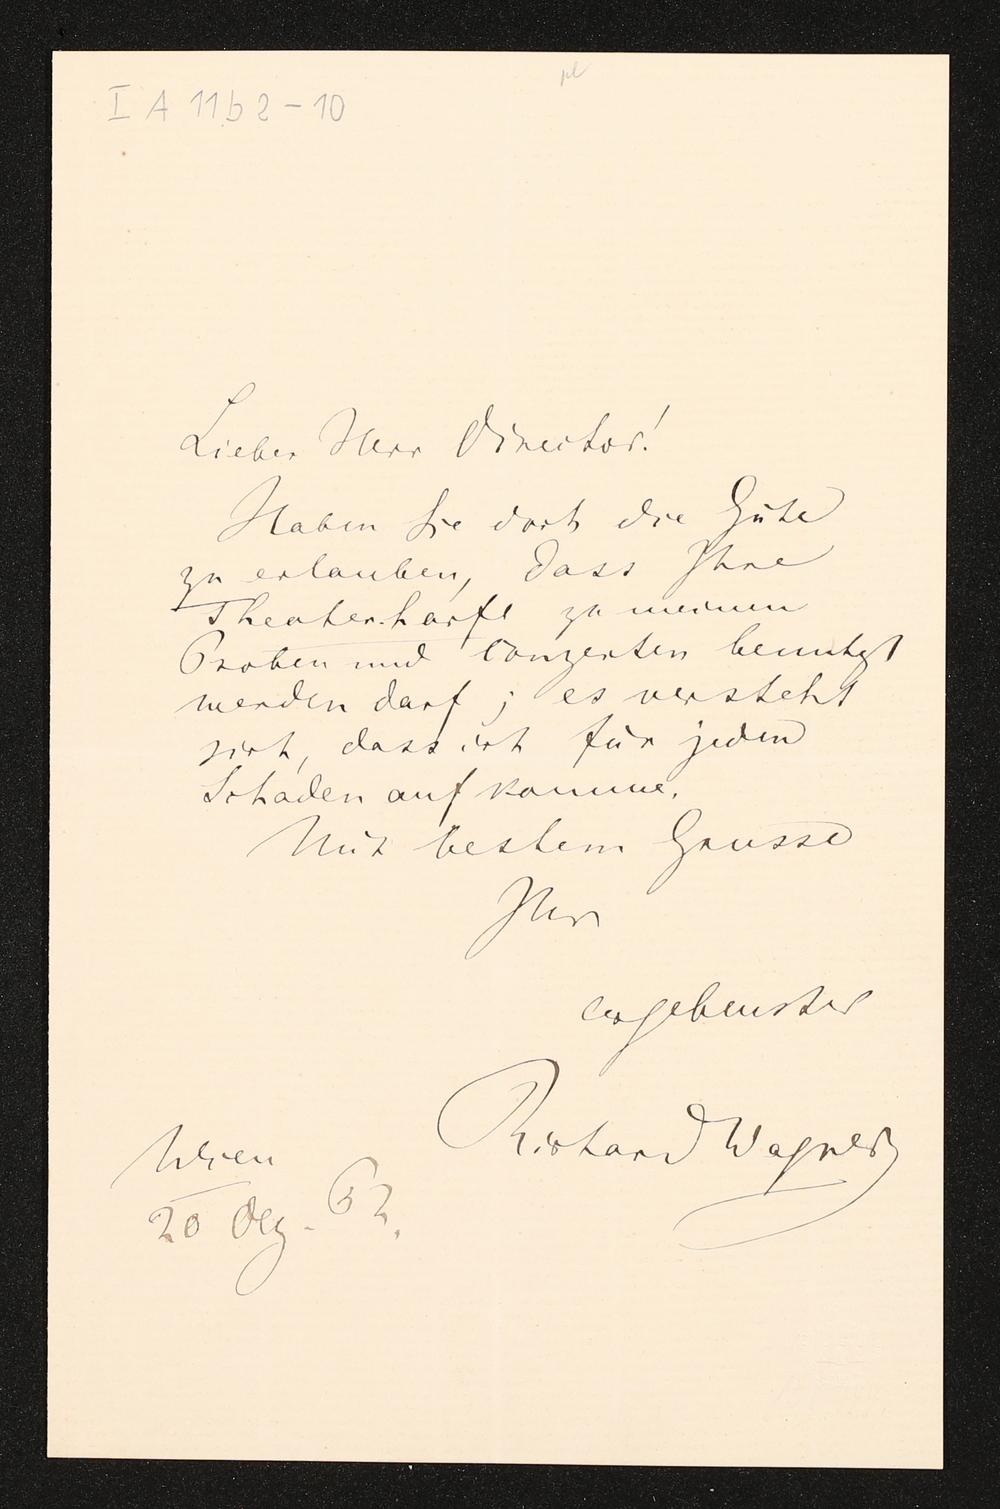 I A 11 b 2 - 10
Lieber Herr Director!
Haben Sie doch die Güte
zu erlauben, dass Ihre
Theaterharfe zu meinen
Proben und Conzerten benutzt
werden darf; es versteht
sich, dass ich für jeden
Schaden aufkomme.
Mit bestem Grusse
Ihr
ergebenster
Richard Wagner
Wien
20 Dez. 62.